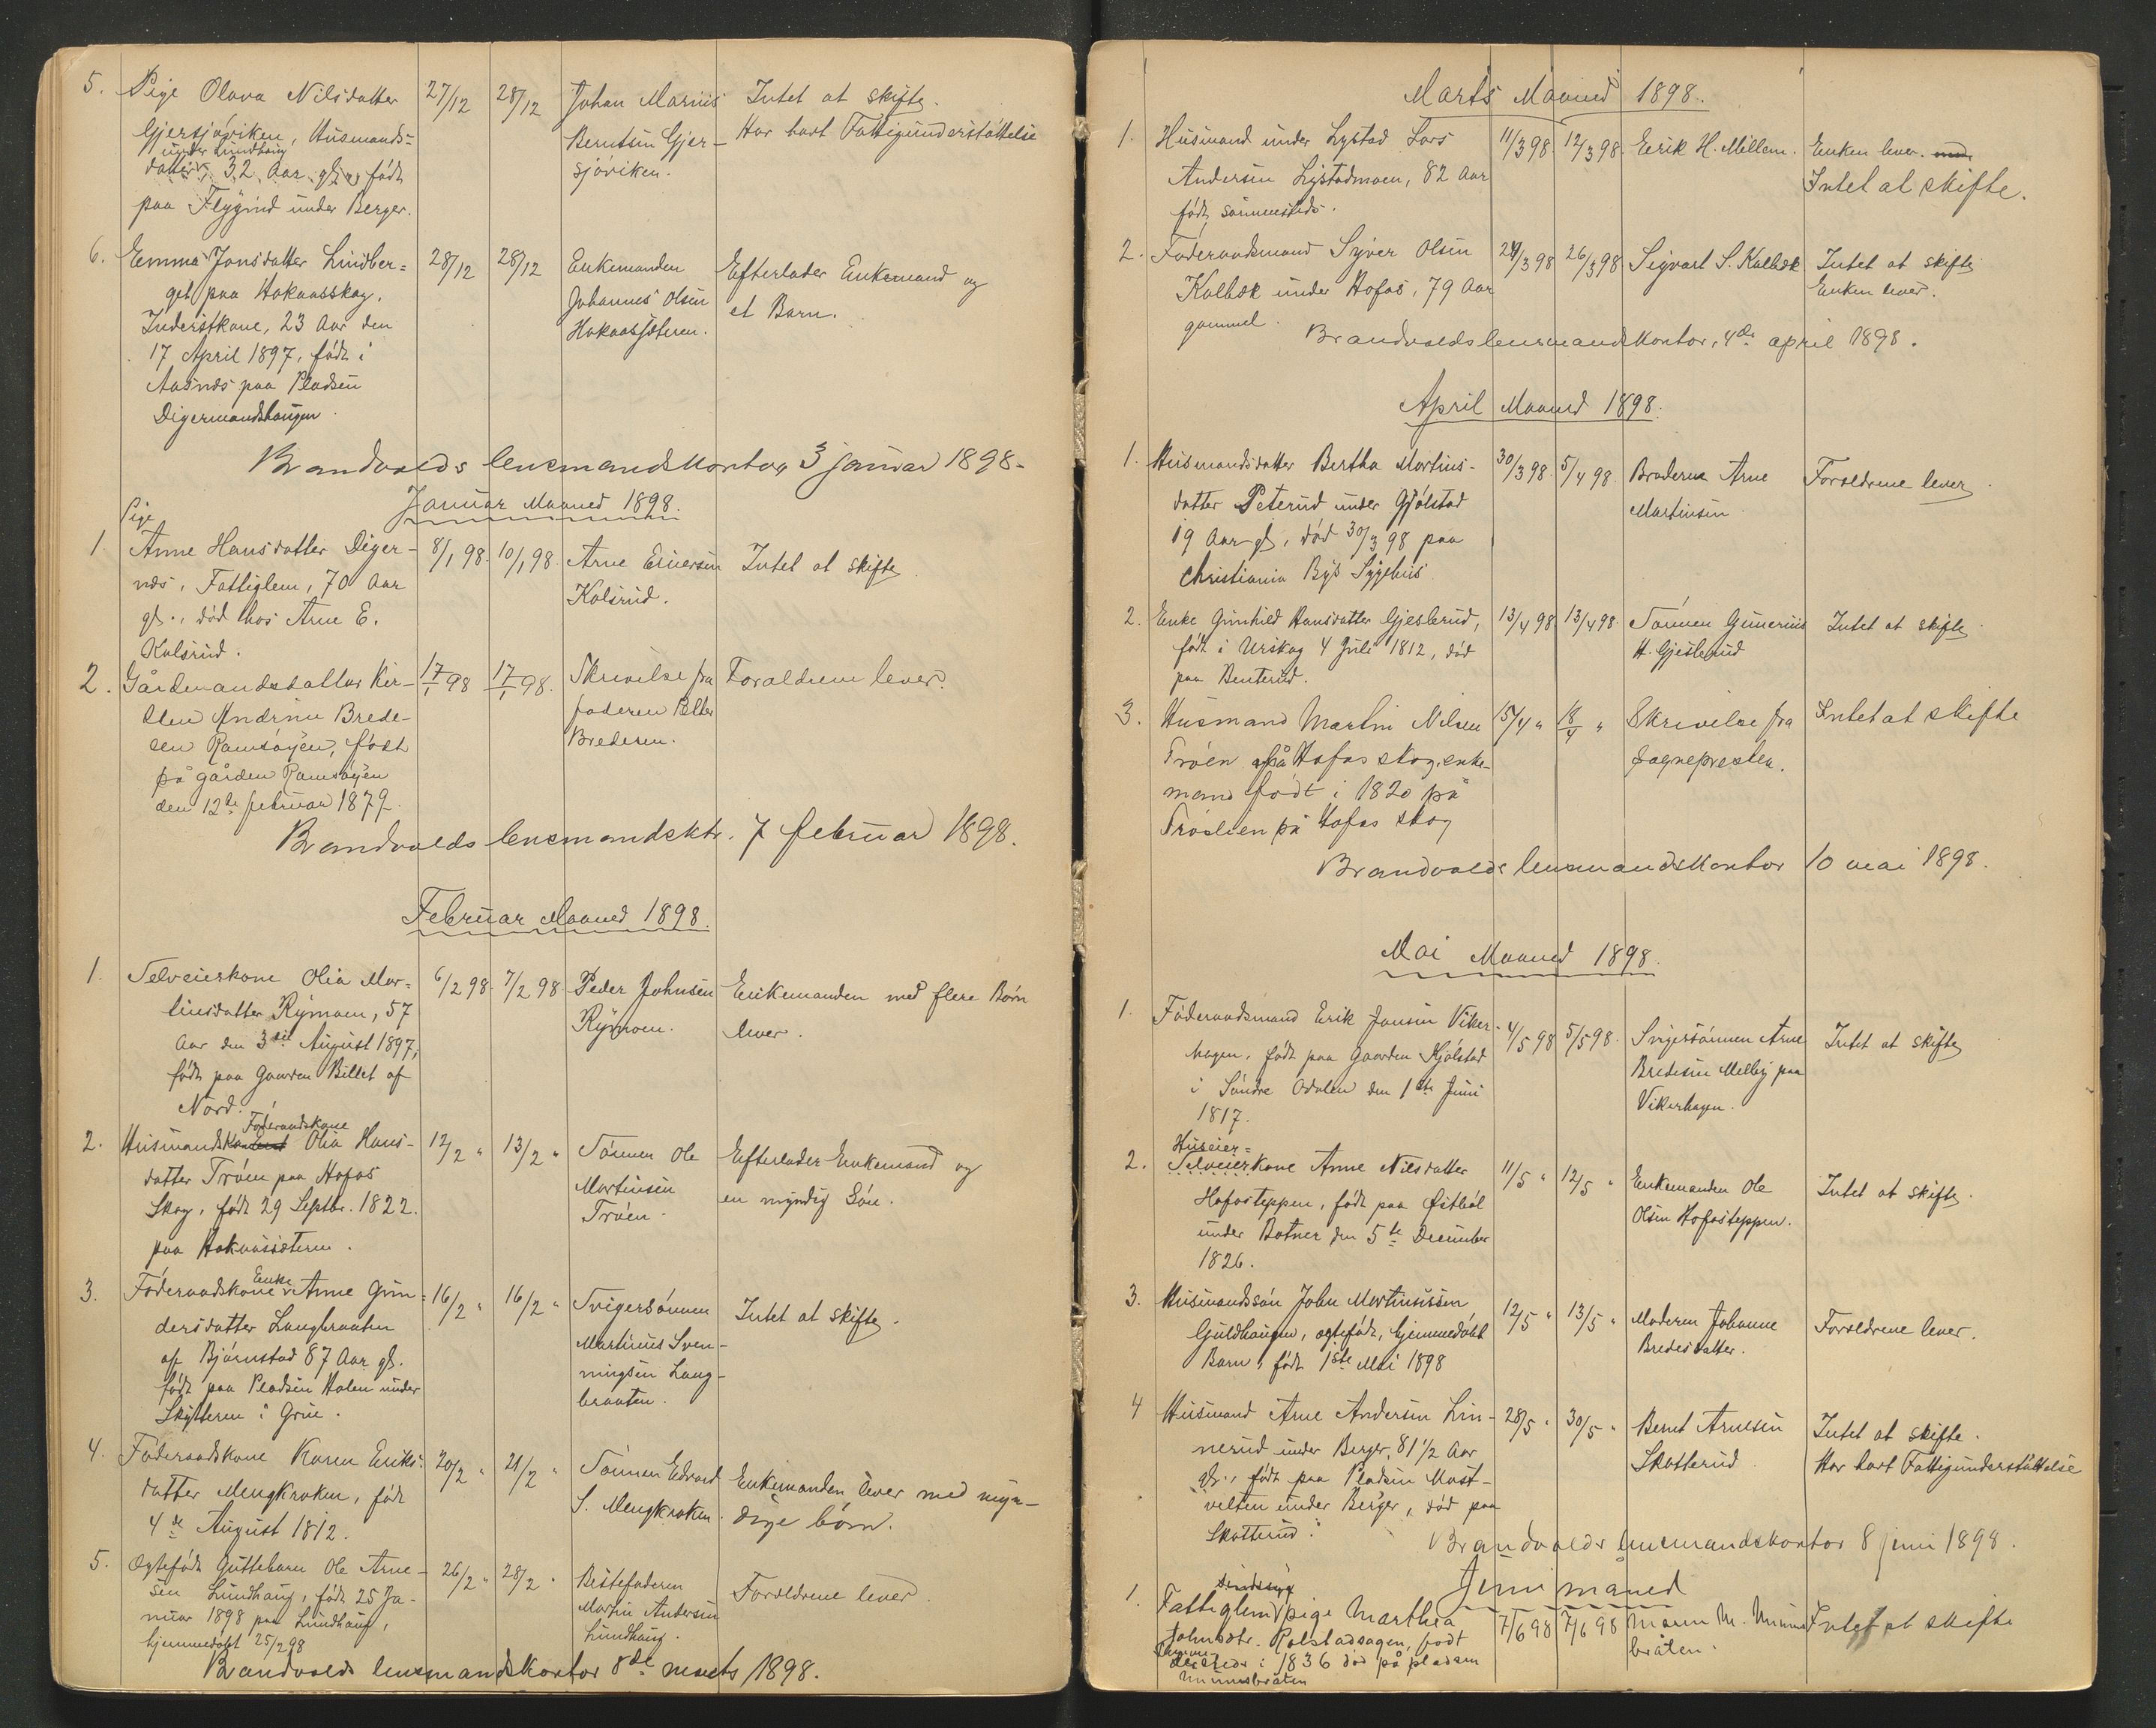 5. Pige Olava Nilsdatter 27/12 28/12 Johan Marius Intet at skifte.
Gjersjøviken, Husmands= Berntsen Gjer- Har havt Fattigunderstøttelse
under Lundhaug
datter, 32 Aar gl., født sjøviken.
paa Flygind under Berger.
6. Emma Jonsdatter Lindber= 28/12 28/12 Enkemanden Efterlader Enkemand og
get paa Hokaasskog, Johannes Olsen et Barn.
Inderstkone, 23 Aar den Hokaassæteren.
17 April 1897, født i
Aasnæs paa Pladsen
Digermandshaugen.
Brandvolds lensmandskontor 3 januar 1898.
Januar Maaned 1898.
Pige
1 Anne Hansdatter Diger- 8/1 98. 10/1 98. Arne Eriersen Intet at skifte
næs, Fattiglem, 70 Aar Kolsrud.
gl., død hos Arne E.
Kolsrud.
2. Gårdmandsdatter Kir- 17/1 98 17/1 98. Skrivelse fra Forældrene lever.
sten Andrine Brede- faderen Petter
sen Ramsøyen, født Bredesen.
på gården Ramsøyen
den 12te februar 1879.
Brandvolds lensmandsktr. 7 februar 1898.
Februar Maaned 1898.
1. Selveierkone Olia Mar= 6/2 98. 7/2 98. Peder Johnsen Enkemanden med flere Børn
tinsdatter Rymoen, 57 Rymoen. lever.
Aar den 3die August 1897,
født paa Gaarden Billet af
Nord.
Føderaadskone
2. Husmandskone Olia Hans- 12/2 " 13/2 " Sønnen Ole Efterlader Enkemand og
datter Trøen paa Hofos Martinsen en myndig Søn.
Skog, født 29 Septbr. 1822. Trøen.
paa Hokaassæteren.
Enke
3. Føderaadskone Anne Gun= 16/2 " 16/2 " Svigersønnen Intet at skifte.
dersdatter Langbraaten Martinus Sven-
af Bjørnstad 87 Aar gl. ningsen Lang-
født paa Pladsen Holen under braaten.
Skytteren i Grue.
4. Føderaadskone Karen Eriks= 20/2 " 21/2 " Sønnen Edvard Enkemanden lever med myn-
datter Mengkroken, født S. Mengkroken. dige børn.
4de August 1812.
5. Ægtefødt Guttebarn Ole Arne- 26/2 " 28/2 " Bestefaderen Forældrene lever.
sen Lundhaug, født 25 Ja- Martin Andersen
nuar 1898 paa Lundhaug, Lundhaug.
hjemmedøbt 25/2 98
Brandvolds lensmandskontor 8de marts 1898.
Marts Maaned 1898.
1. Husmand under Lystad Lars 11/3 98 12/3 98. Eerik H. Millem. Enken lever.
Andersen Lystadmoen, 82 Aar Intet at skifte.
født sammesteds.
2. Føderaadsmand Syver Olsen 24/3 98 26/3 98 Sigvart S. Kalbæk Intet at skifte
Kalbæk under Hofos, 79 Aar Enken lever.
gammel.
Brandvolds lensmandskontor, 4de april 1898.
April Maaned 1898.
1. Husmandsdatter Bertha Martins- 30/3 98. 5/4 98. Broderen Arne Forældrene lever.
datter Peterud under Gjølstad Martinsen
19 Aar gl., død 30/3 98 paa
Christiania Bys Sygehus
2. Enke Gunhild Hansdatter Gjeslerud, 13/4 98 13/4 98. Sønnen Gunerius Intet at skifte
født i Urskog 4 Juli 1812, død H. Gjeslerud
paa Benterud.
3. Husmand Martin Nilsen 15/4 " 18/4 " Skrivelse fra Intet at skifte
Trøen på Hofos skog, enke- sognepresten.
mand født i 1820 på
Trøslien på Hofos skog
Brandvolds lensmandskontor 10 mai 1898.
Mai Maaned 1898.
1. Føderaadsmand Erik Jonsen Viker- 4/5 98 5/5 98. Svigersønnen Arne Intet at skifte
hagen, født paa Gaarden Hjølstad Bredesen Melby paa
i Søndre Odalen den 1ste Juni Vikerhagen.
1817.
Huseier=
2. Selveierkone Anne Nilsdatter 11/5 " 12/5 " Enkemanden Ole Intet at skifte.
Hofosteppen, født paa Østbøl Olsen Hofosteppen.
under Botner den 5te December
1826.
3. Husmandssøn John Martinissen 12/5 " 13/5 " Moderen Johanne Forældrene lever.
Guldhaugen, ægtefødt, hjemmedøbt Bredesdatter.
Barn, født 1ste Mai 1898
4 Husmand Arne Andersen Lin- 28/5 " 30/5 " Bernt Arnesen Intet at skifte.
nerud under Berger, 81 1/2 Aar Skotterud. Har havt Fattigunderstøttelse
gl., født paa Pladsen Mast-
velten under Berger, død paa
Skotterud.
Brandvolds lensmandskontor 8 juni 1898.
Juni måned
sindssyg
1. Fattiglem pige Marthea 7/6 98 7/6 98 Maren M. Munns Intet at skifte
Johnsdtr. Rolstadsagen, født bråten.
i 1836 død på pladsen
Munnsbråten